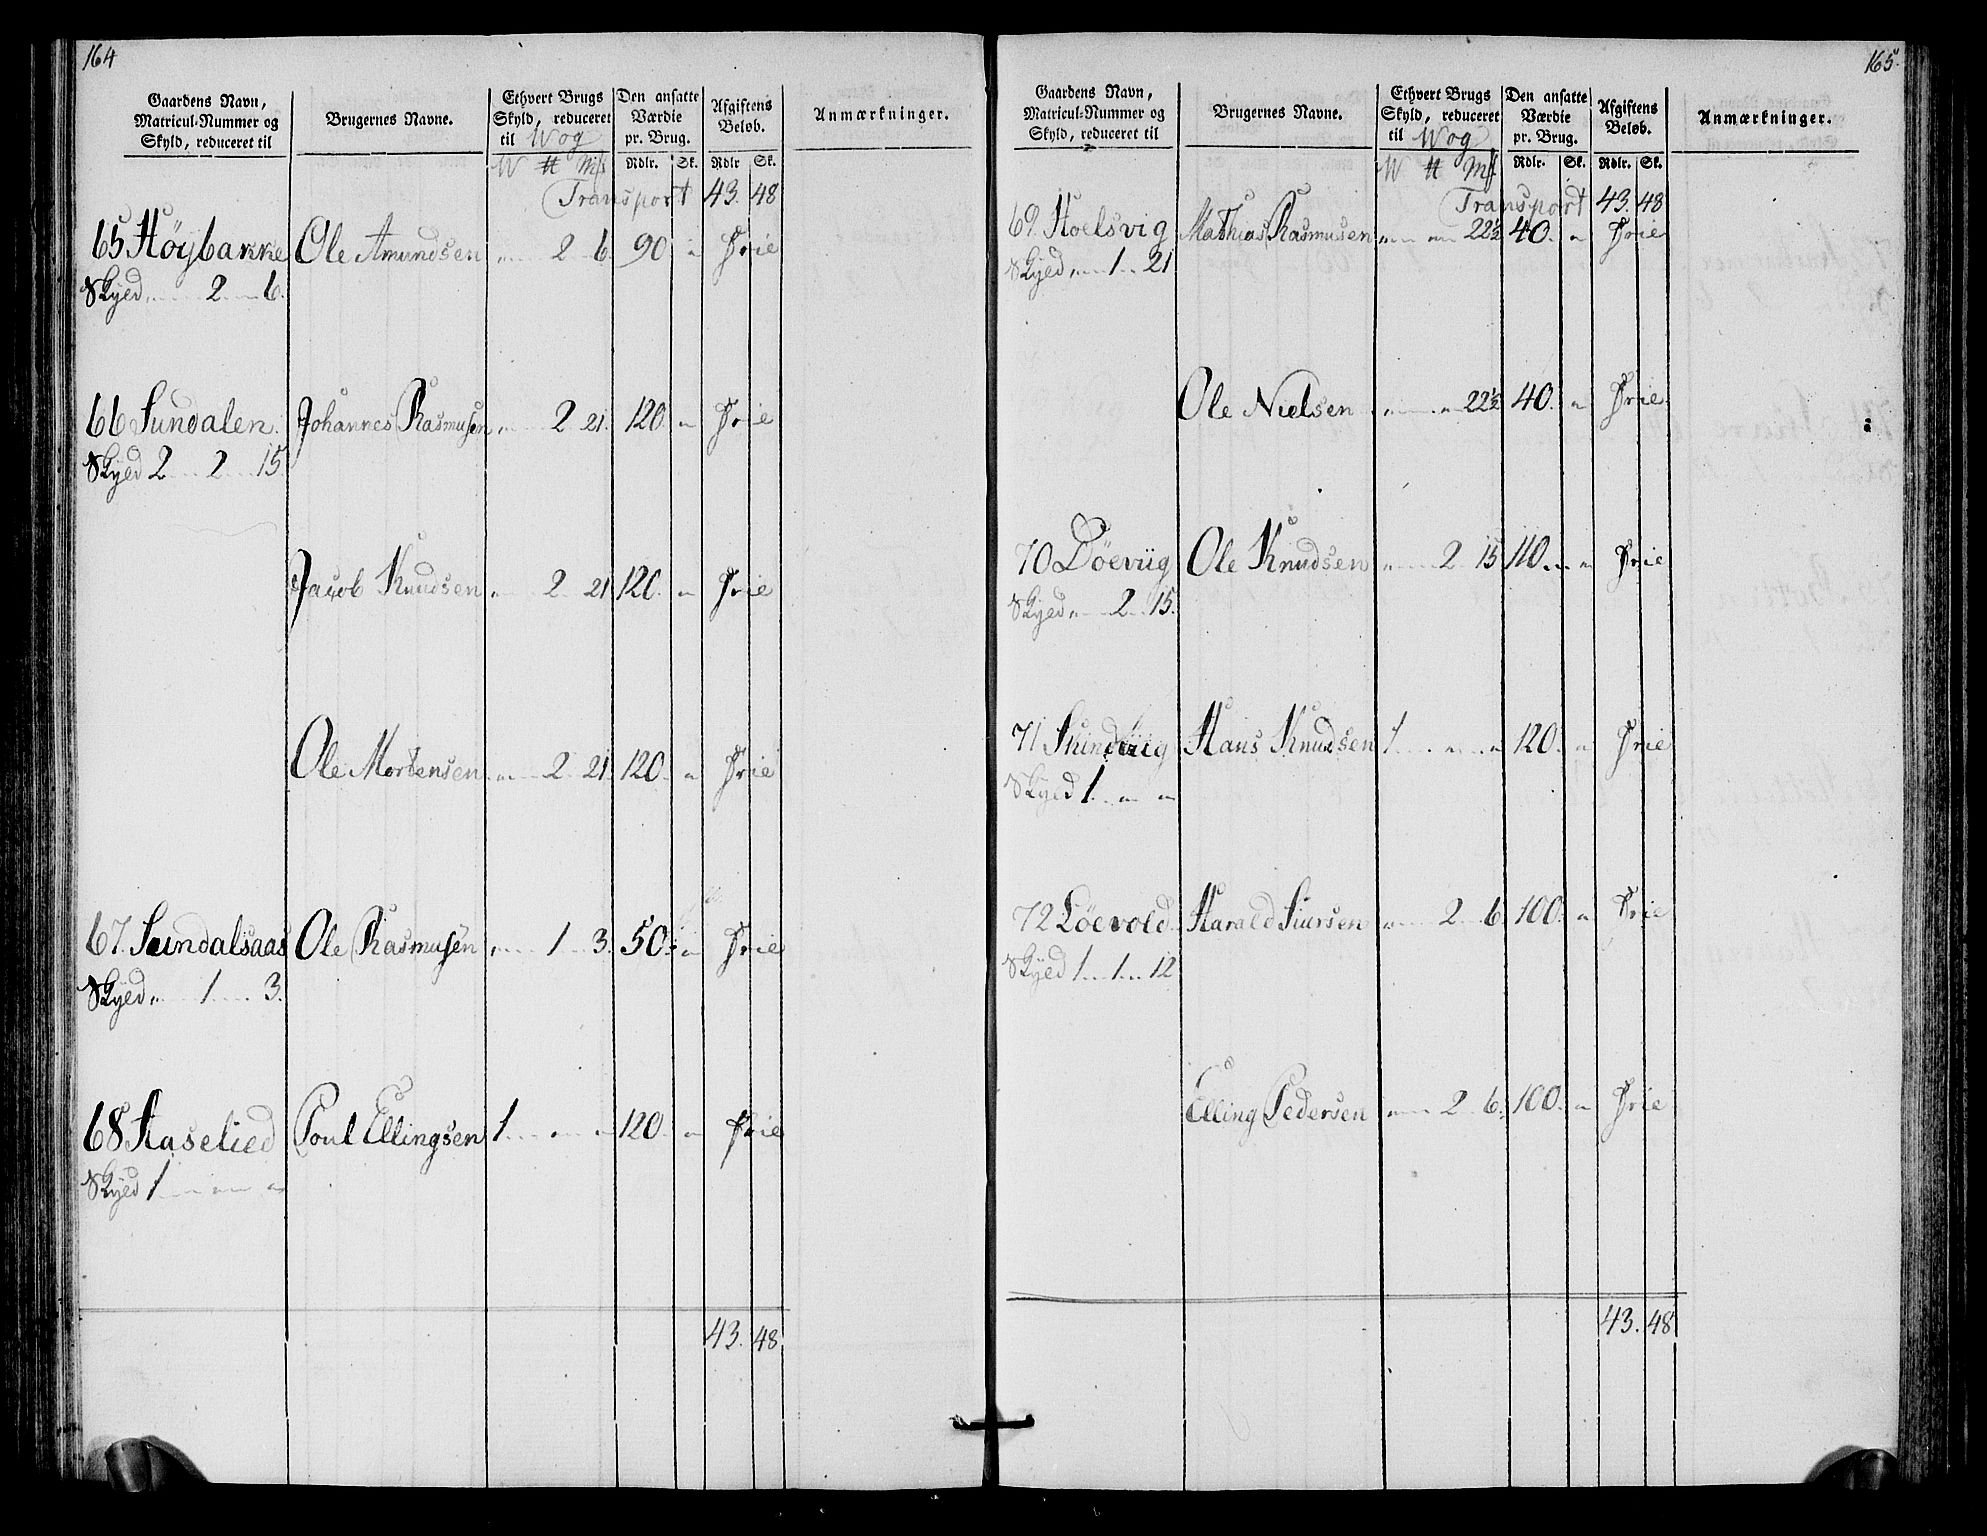 164
Gaardens Navn, Matricul-Nummer og Skyld, reduceret til | Brugernes Navne. | Ethvert Brugs Skyld, reduceret til Wog | Den ansatte Værdie pr. Brug. | Afgiftens Beløb. | Anmærkninger.
W ℔ Mk | Rdlr. | Sk. | Rdlr | Sk.
Transport 43. 48
65 Höybakke Ole Amundsen " 2 6. 90 " Frie
Skyed " 2 6.
66 Sundalen Johannes Rasmusen " 2 21. 120. " Frie
Skyed 2 2 15.
Jacob Knudsen " 2 21 120. " Frie
Ole Mortensen " 2 21. 120. " Frie
67. Sundalsaas Ole Rasmusen " 1 3. 50. " Frie
Skyed " 1 3.
68 Haselied Poul Ellingsen 1 " " 120. " Frie
Skyed 1 " "
43. 48
165.
Gaardens Navn, Matricul-Nummer og Skyld, reduceret til | Brugernes Navne. | Ethvert Brugs Skyld, reduceret til Wog | Den ansatte Værdie pr. Brug. | Afgiftens Beløb. | Anmærkninger.
W ℔ Mk | Rdlr. | Sk. | Rdlr. | Sk.
Transport 43. 48
69. Hoelsvig Mathias Rasmusen " " 22½ 40. " Frie
Skyed " 1 21
Ole Nielsen " " 22½ 40. " Frie
70 Döeviig Ole Knudsen " 2 15 110. " Frie
Skyed " 2 15.
71 Hans Knudsen 1 " " 120. " Frie
Skyed 1. " "
72 Löevold Harald Siursen " 2 6 100. " Frie
Skyed 1 1 12
Elling Pedersen " 2 6. 100. " Frie
43. 48